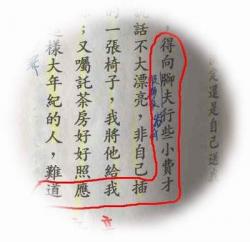 還是自己送
得向腳夫行些小費才
話不大漂亮,非自己插
的一張椅子,我將他給我
;又囑託茶房好好照應
樣大年紀的人,難道